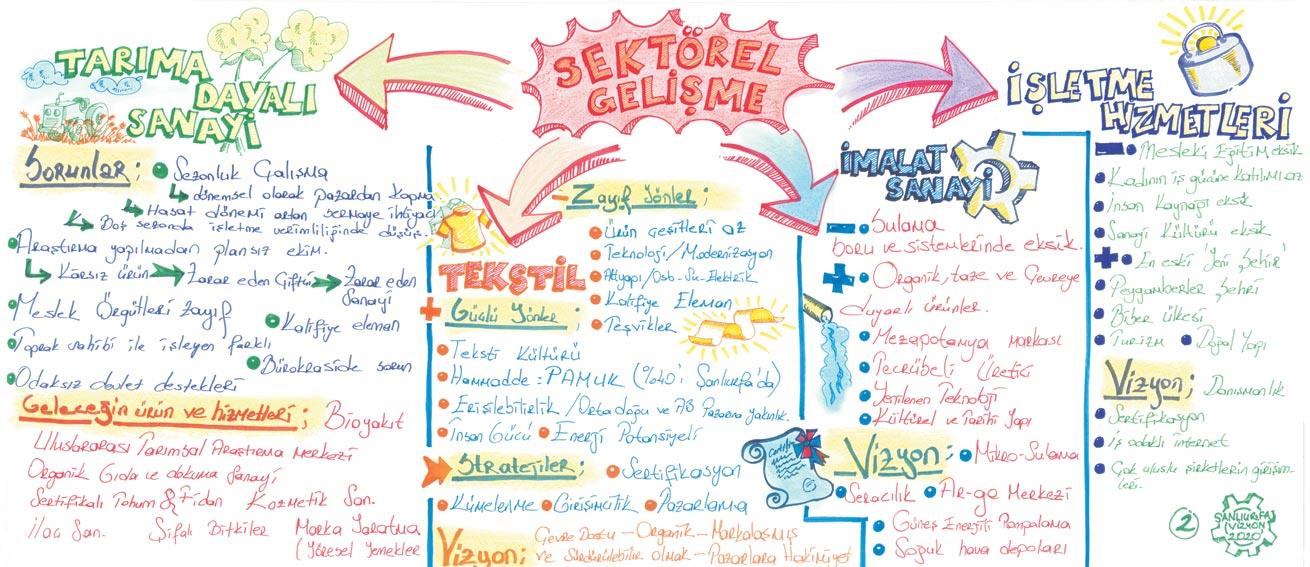 SEKTÖREL
GELİŞME
TARIMA
DAYALI
SANAYİ
Sorunlar;
• Sezonluk Çalışma
dönemsel olarak pazardan kopma
Hasat dönemi artan sermaye ihtiyacı
Boş sezonda işletme verimliliğinde düşüş.
• Araştırma yapılmadan plansız ekim.
Karsız ürün → Zarar eden Çiftçi → Zarar eden
Sanayi
• Meslek Örgütleri zayıf
• Kalifiye eleman
• Toprak sahibi ile işleyen farklı
• Bürokraside sorun
• Odaksız devlet destekleri
Geleceğin ürün ve hizmetleri; Bioyakıt
Uluslararası Tarımsal Araştırma Merkezi
Organik Gıda ve dokuma Sanayi
Sertifikalı Tohum & Fidan Kozmetik San.
İlaç San. Şifalı Bitkiler Marka Yaratma
(Yöresel Yemekler
TEKSTİL
+ Güçlü Yönler;
• Teksti Kültürü
• Hammadde: PAMUK (%40'ı Şanlıurfa'da)
• Erişilebilirlik / Ortadoğu ve AB Pazarına yakınlık.
• İnsan Gücü • Enerji Potansiyeli
Zayıf Yönler;
• Ürün Çeşitleri az
• Teknoloji / Modernizasyon
• Altyapı / Osb - Su - Elektrik
• Kalifiye Eleman
• Teşvikler
Stratejiler;
• Sertifikasyon
• Kümelenme • Girişimcilik • Pazarlama
Vizyon;
Çevre Dostu - Organik - Markalaşmış
ve Sürdürülebilir olmak - Pazarlara Hakimiyet
İMALAT
SANAYİ
- • Sulama
boru ve sistemlerinde eksik.
+ • Organik, taze ve Çevreye
duyarlı ürünler.
• Mezapotanya markası
• Tecrübeli Üretici
• Yenilenen Teknoloji
• Kültürel ve Tarihi Yapı
Vizyon;
• Mikro-Sulama
• Seracılık • Ar-ge Merkezi
• Güneş Enerjili Pompalama
• Soğuk hava depoları
İŞLETME
HİZMETLERİ
- • Mesleki Eğitim eksik
• Kadının iş gücüne katılımı az
• İnsan Kaynağı eksik
• Sanayi Kültürü eksik
+ • En eski 'Yeni Şehir'
• Peygamberler Şehri
• Biber ülkesi
• Turizm • Doğal Yapı
Vizyon; Danışmanlık
• Sertifikasyon
• İş odaklı internet
• Çok uluslu şirketlerin girişim-
leri.
2
ŞANLIURFA
VİZYON
2020